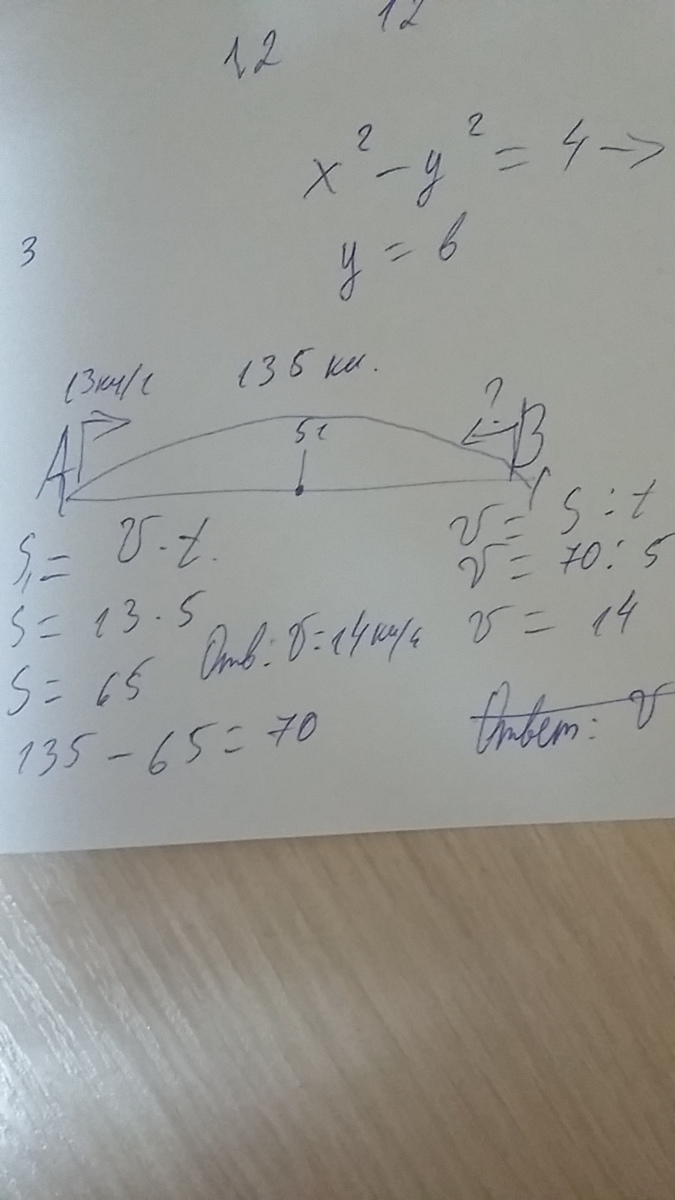 12 12
x² - y² = 4 →
3
y = 6
13км/ч 135 км.
?
A 5ч B
S₁ = V · t.
V = S : t
S = 13 · 5
V = 70 : 5
S = 65
Отв: V = 14 км/ч
V = 14
135 - 65 = 70
Ответ: V